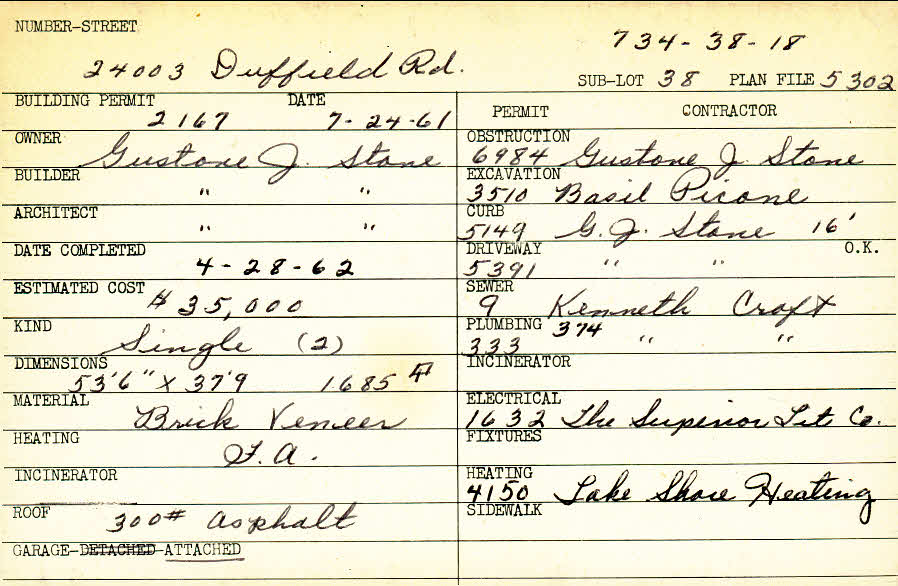 NUMBER-STREET
734-38-18
24003 Duffield Rd.
SUB-LOT 38 PLAN FILE 5302
BUILDING PERMIT DATE
2167 7-24-61
PERMIT CONTRACTOR
OWNER
Gustone J. Stone
OBSTRUCTION
6984 Gustone J. Stone
BUILDER
" "
EXCAVATION
3510 Basil Picone
ARCHITECT
" "
CURB
5149 G. J. Stone 16'
DATE COMPLETED
4-28-62
DRIVEWAY O.K.
5391 " "
ESTIMATED COST
$35,000
SEWER
9 Kenneth Croft
KIND
Single (2)
PLUMBING 374
333 " "
DIMENSIONS
53'6" X 37'9 1685
INCINERATOR
MATERIAL
Brick Veneer
ELECTRICAL
1632 The Superior Lit Co.
HEATING
F.A.
FIXTURES
INCINERATOR
HEATING
4150 Lake Shore Heating
ROOF
300# Asphalt
SIDEWALK
GARAGE-DETACHED-ATTACHED